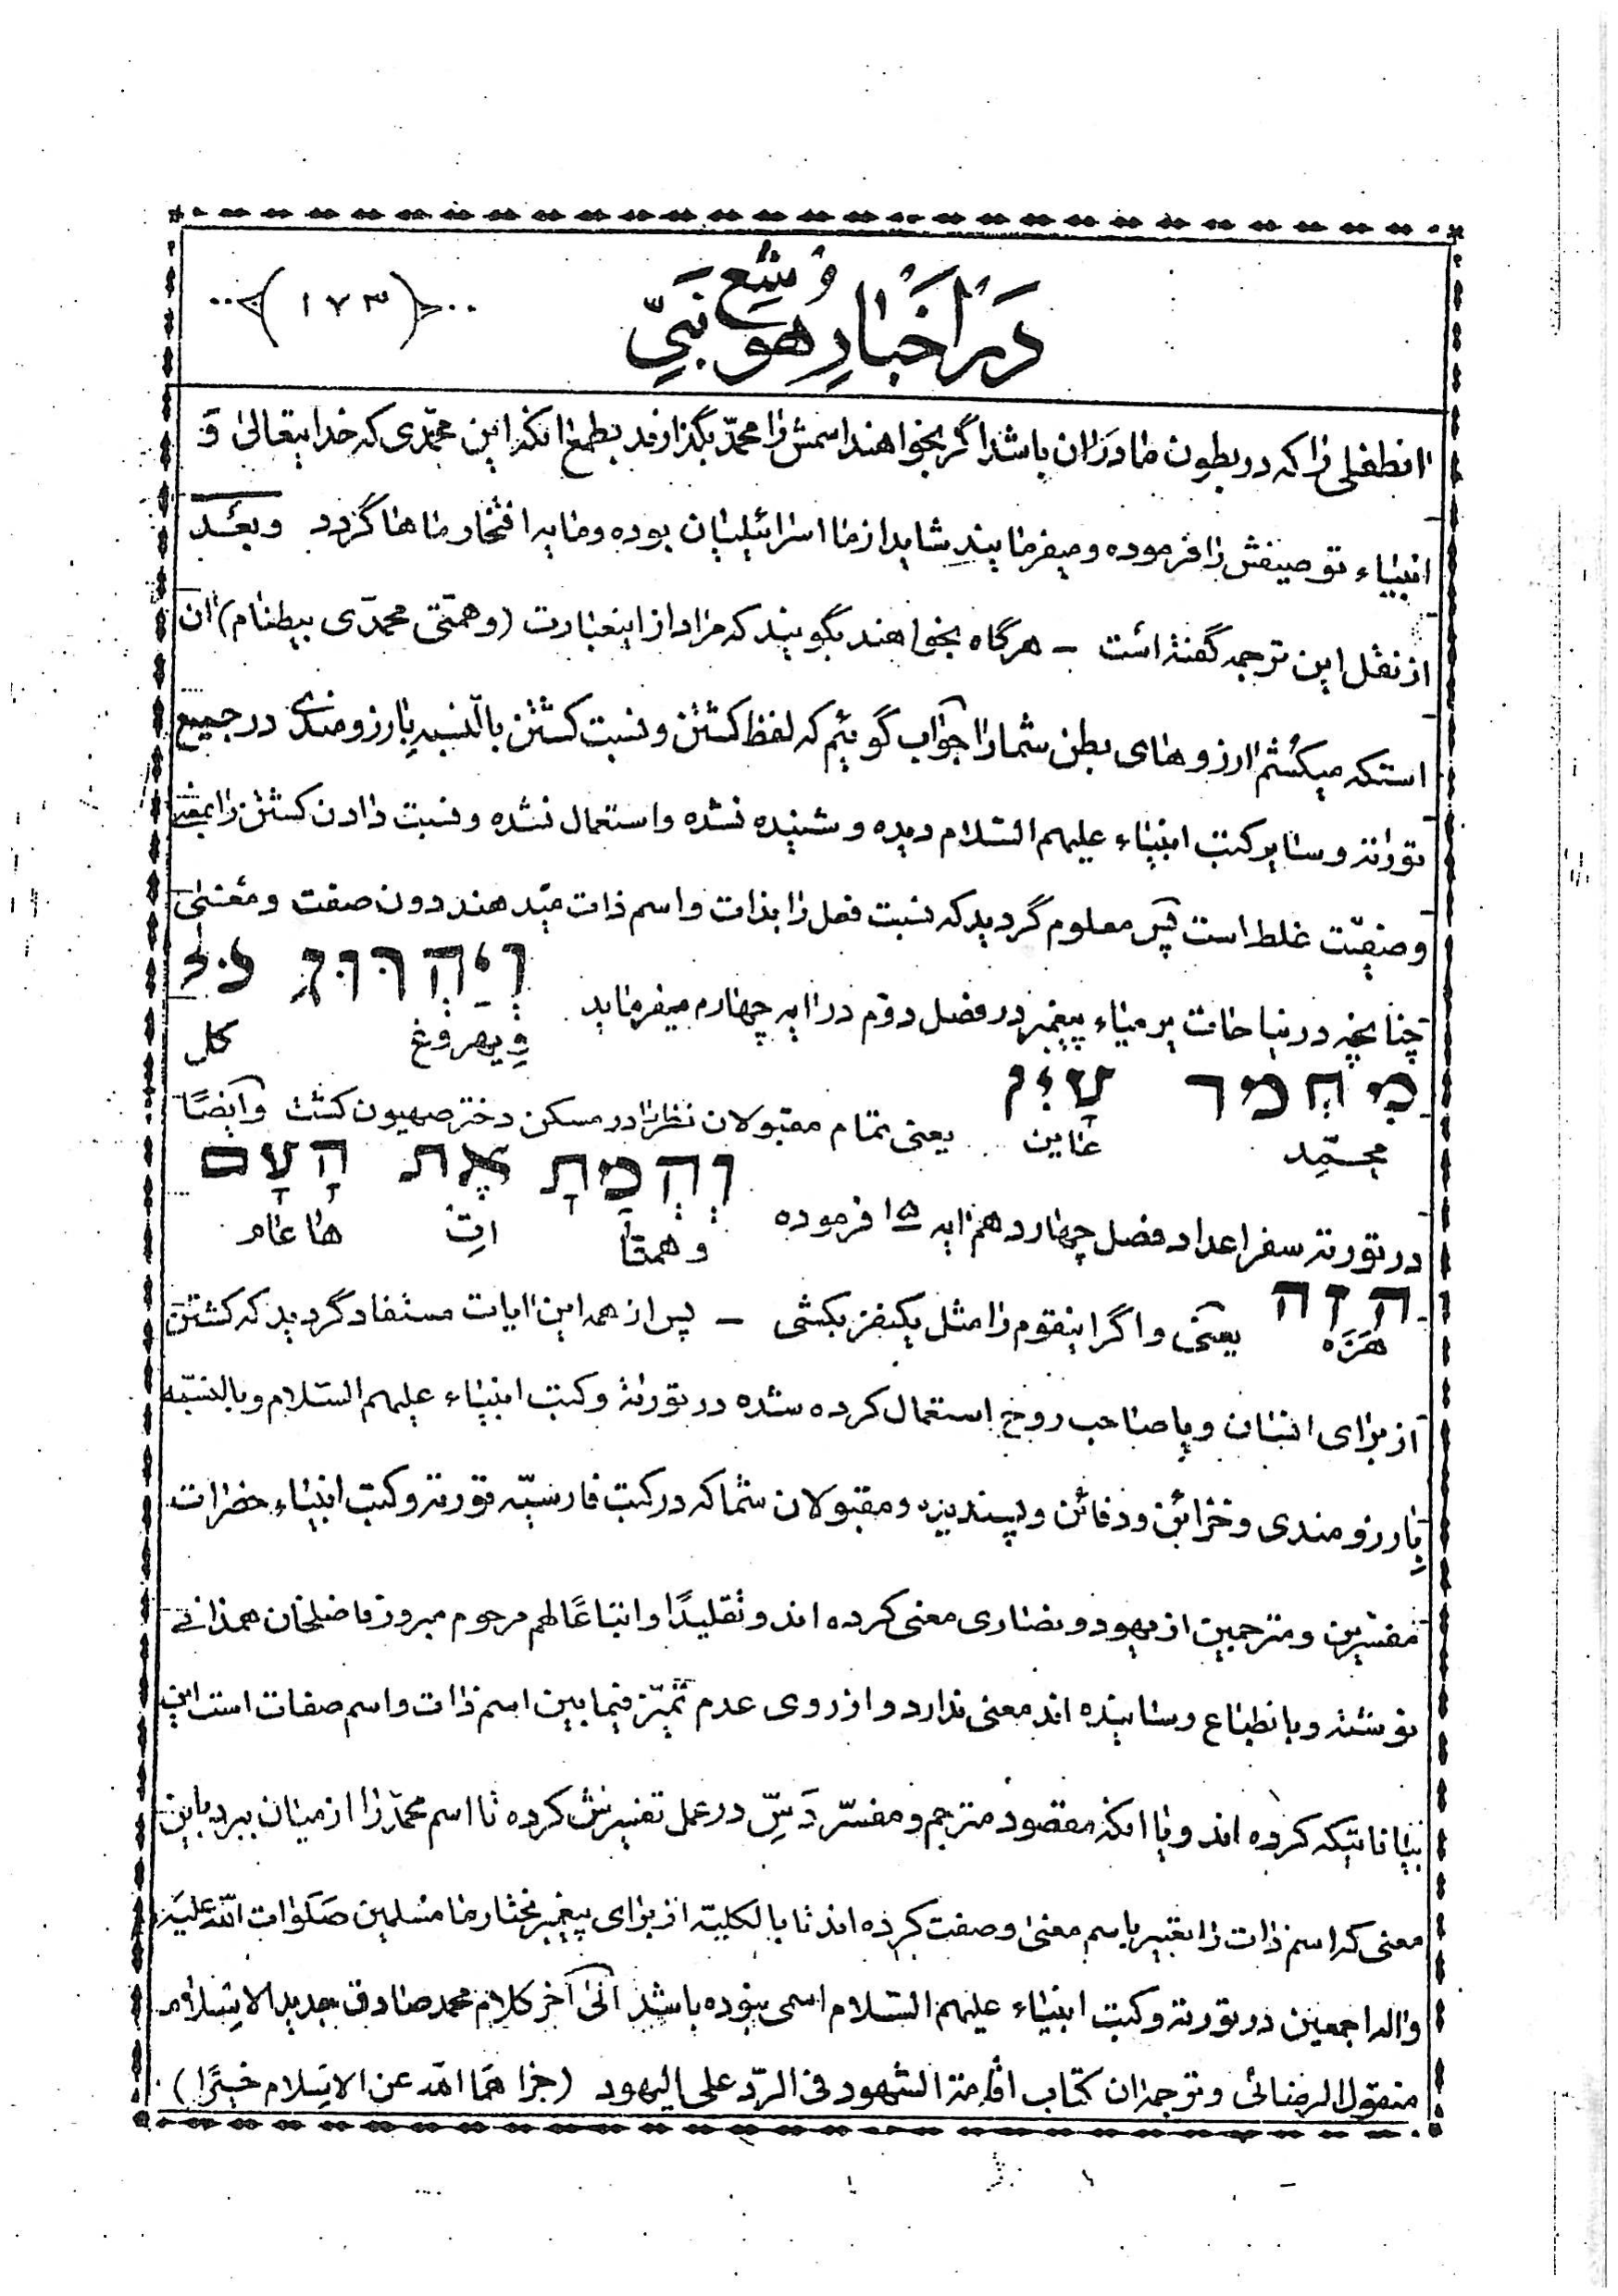 در اخبار هوشیع نبی
(۱۷۳)
انطفلی را که در بطون مادران باشد اگر بخواهند اسمش را محمّد بگذارند بطمع انکه این محمّدی که خدایتعالی و
انبیاء توصیفش را فرموده و میفرمایند شاید از ما اسرائیلیان بوده و مایه افتخار ماها گردد وبعد
از نقل این ترجمه گفته است – هرگاه بخواهند بگویند که مراد از اینعبارت (وهمتی محمدّی بیطنام) ان
استکه میکشم ارزوهای بطن شما را جواب گوئیم که لفظ کشتن و نسبت کشتن بالنّسبه بارزومندی در جمیع
توراته و سایر کتب انبیاء علیهم السّلام دیده و شنیده نشده و استعمال نشده و نسبت دادن کشتن را بمعنی
وصفیّت غلط است پس معلوم گردید که نسبت فعل را بذات و اسم ذات میدهند دون صفت و معنی
چنانچه در نیاحات یرمیاء پیغمبر در فصل دوّم در ایه چهارم میفرماید וַיַּהֲרוֹג כֹּל
ویهروغ کل
מַחֲמַד עָיִן
محمّد عاین یعنی تمام مقبولان نظر را در مسکن دختر صهیون کشت وایضًا
در تورته سفر اعداد فصل چهاردهم ایه ۱۵ فرموده וְהֵמַתָּ אֶת הָעָם
وهمتا ات هاعام
הַזֶּה
هزه یعنی و اگر اینقوم را مثل یکنفر بکشی – پس از همه این ایات مستفاد گردید که کشتن
از برای انسان و یا صاحب روخ استعمال کرده شده در توراته و کتب انبیاء علیهم السّلام و بالنسّبه
بارزومندی و خزائن و دفائن و پسندیزه و مقبولان شما که در کتب فارسیّه تورته و کتب انبیاء حضرات
مفسّرین و مترجمین از یهود و نصاری معنی کرده اند و تقلیدًا و اتباعًا لهم مرحوم میروز فاضلخان همدانی
نوشته و بانطباع رسانیده اند معنی ندارد و از روی عدم تمیّز فیما بین اسم ذات و اسم صفات است این
بیاناتیکه کرده اند و یا انکه مقصود مترجم و مفسّر دَسّ در عمل تفسیرش کرده تا اسم محمّد را از میان ببرد باین
معنی که اسم ذات را تعبیر باسم معنی و صفت کرده اند تا بالکلیّه از برای پیغمبر مختار ما مسلمین صَلَوات اللّه علیه
واله اجمعین در تورته و کتب انبیاء علیهم السّلام اسمی نبوده باشد الی آخر کلام محمد صادق جدید الاسلام
منقول الرضائی و ترجمه ان کتاب اقامة الشهود فی الرّد علی الیهود (جزاهما اللّه عن الاسلام خیرًا)